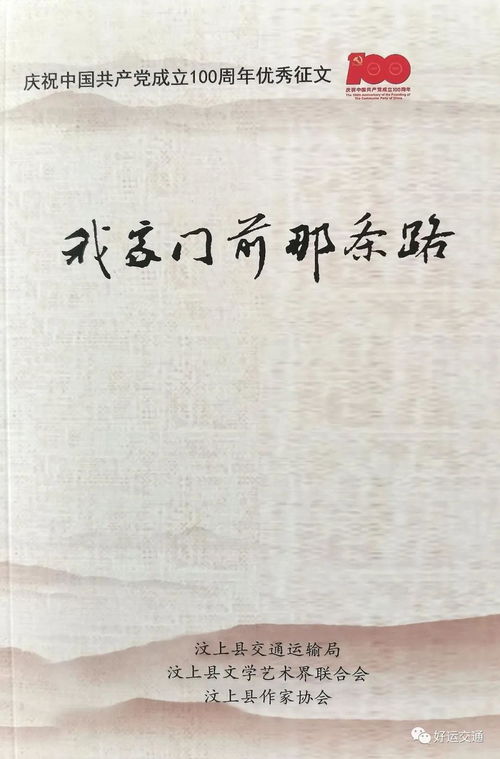 庆祝中国共产党成立100周年优秀征文
100
庆祝中国共产党成立100周年
The 100th Anniversary of the Founding of
The Communist Party of China
我家门前那条路
汶上县交通运输局
汶上县文学艺术界联合会
汶上县作家协会
好运交通